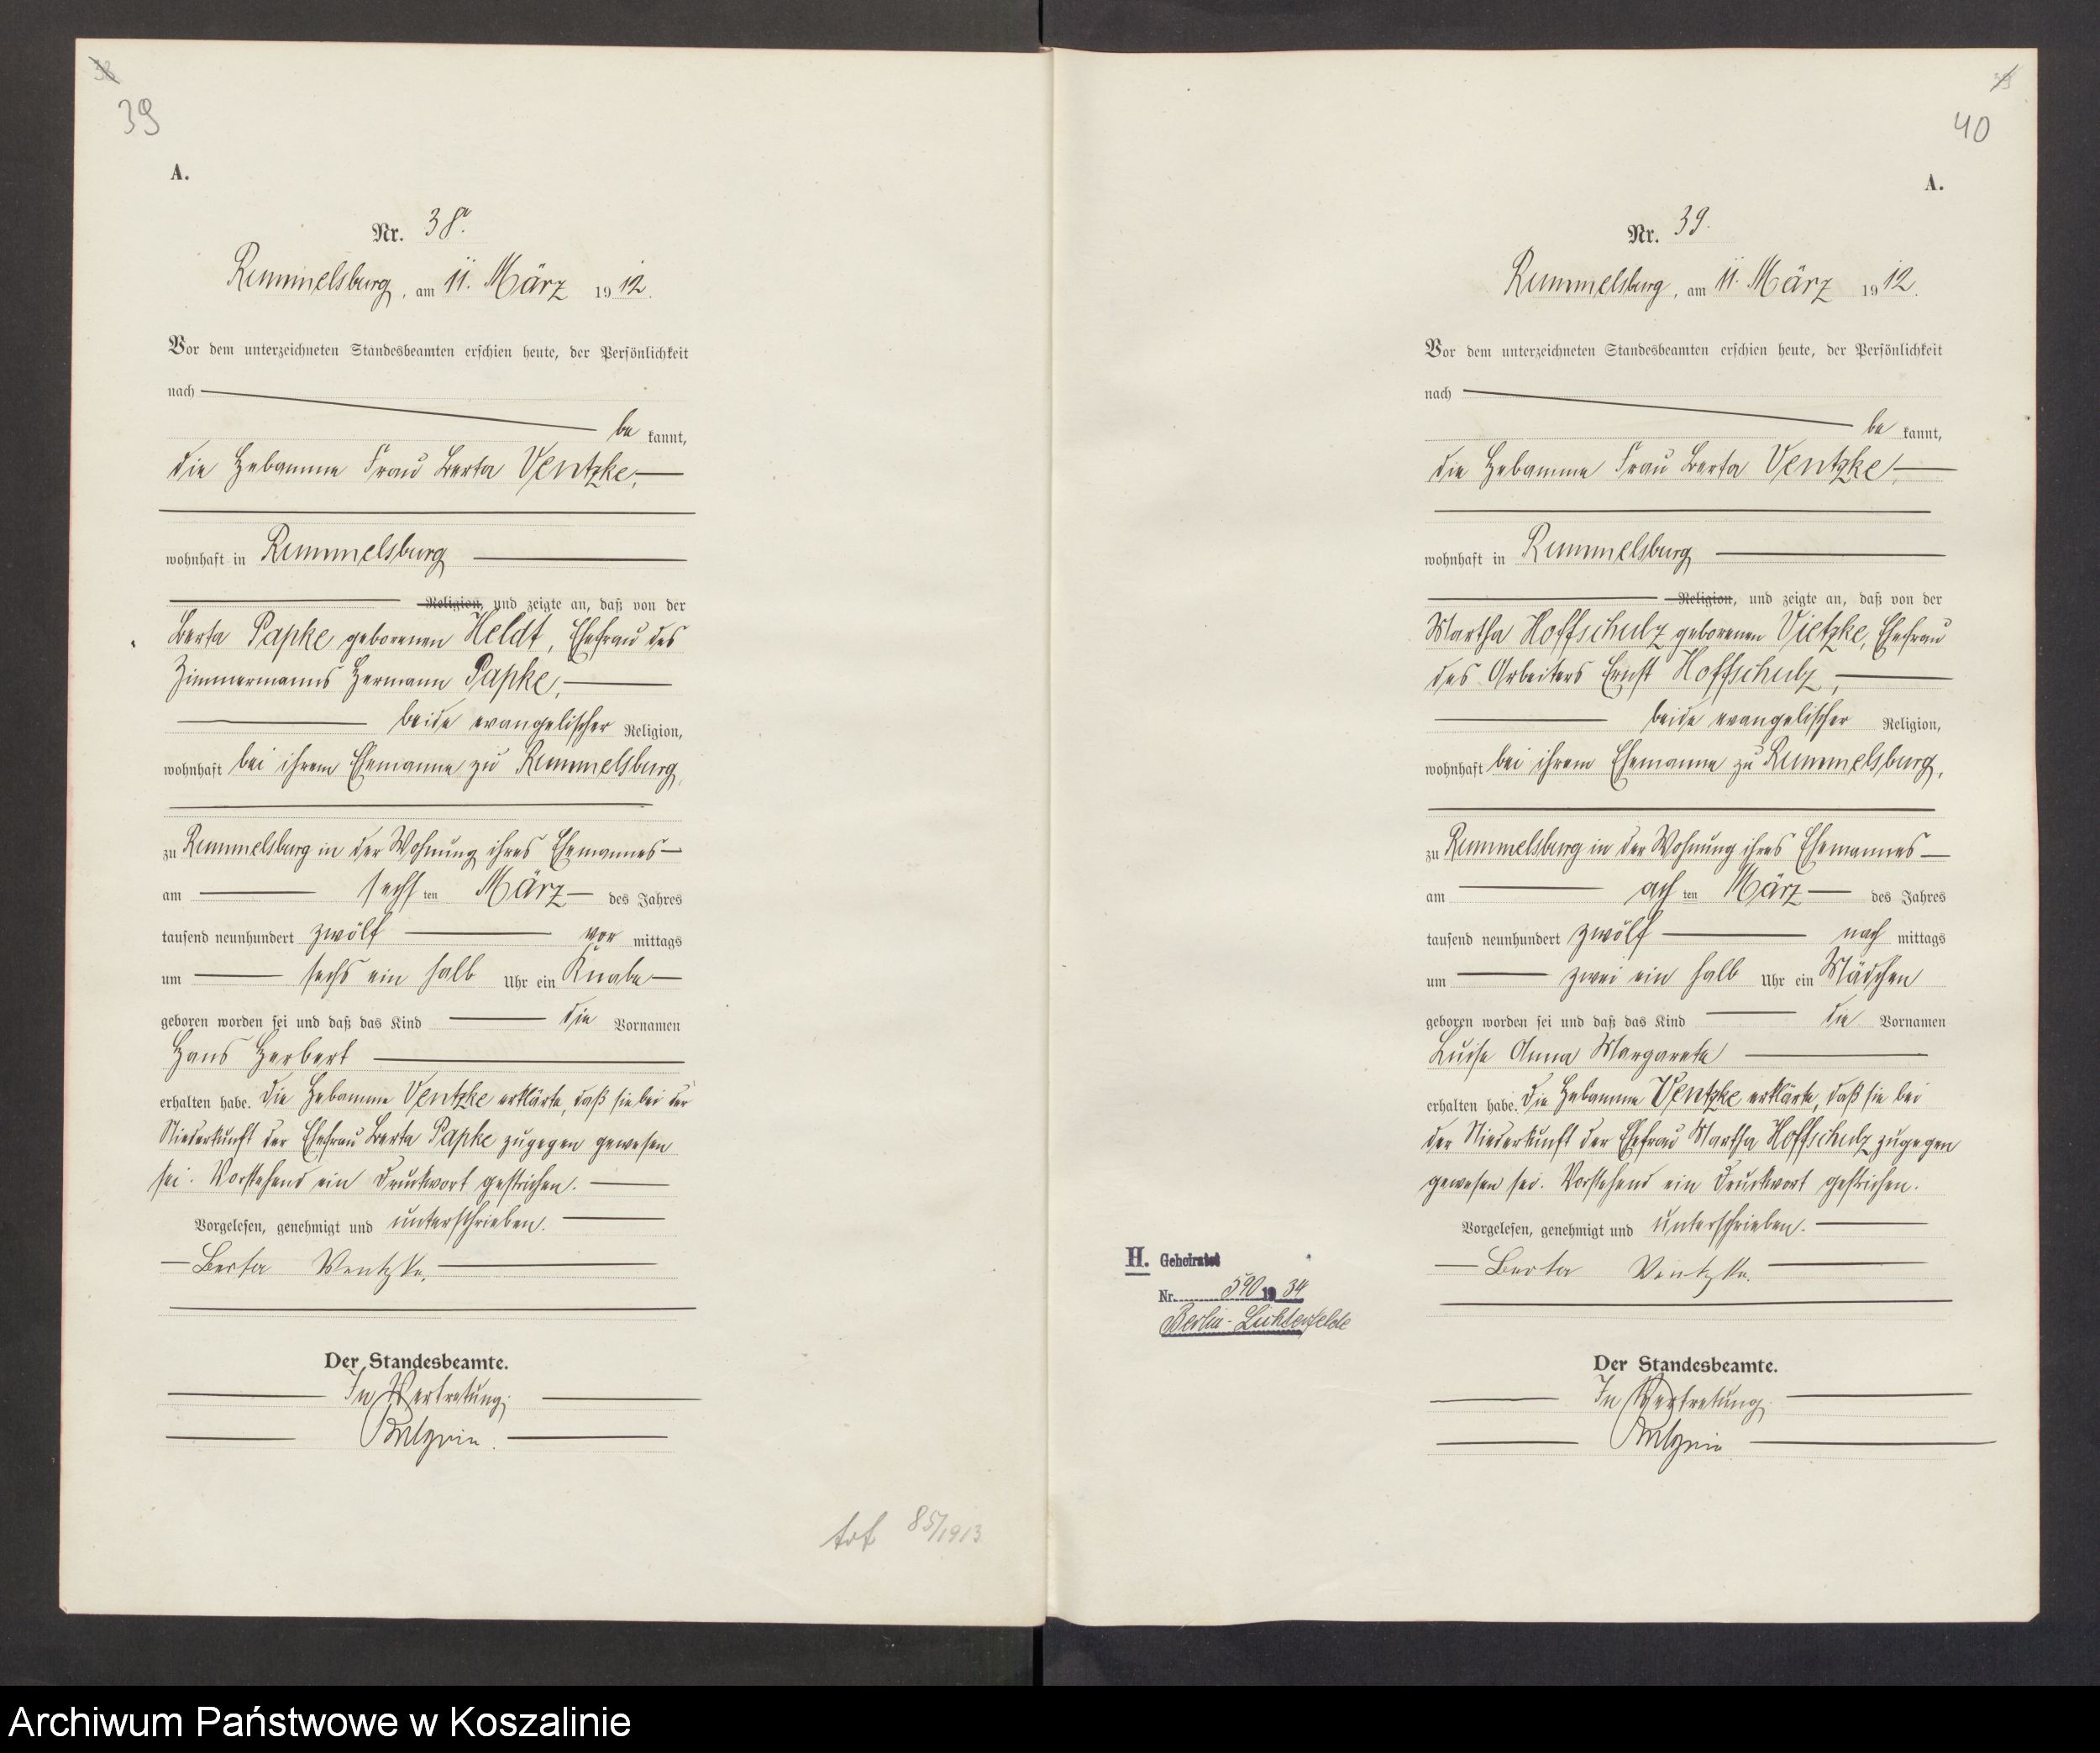 39
A.
Nr. 38a.
Rummelsburg, am 11. März 1912.
Vor dem unterzeichneten Standesbeamten erschien heute, der Persönlichkeit
nach
be kannt,
die Hebamme Frau Berta Ventzke,
wohnhaft in Rummelsburg
Religion, und zeigte an, daß von der
Berta Papke geborenen Heldt, Ehefrau des
Zimmermanns Hermann Papke,
beide evangelischer Religion,
wohnhaft bei ihrem Ehemanne zu Rummelsburg,
zu Rummelsburg in der Wohnung ihres Ehemannes
am sechs ten März des Jahres
tausend neunhundert zwölf vor mittags
um sechs ein halb Uhr ein Knabe
geboren worden sei und daß das Kind die Vornamen
Hans Herbert
erhalten habe. Die Hebamme Ventzke erklärte, daß sie bei der
Niederkunft der Ehefrau Berta Papke zugegen gewesen
sei. Vorstehend ein Druckwort gestrichen.
Vorgelesen, genehmigt und unterschrieben.
Berta Ventzke.
Der Standesbeamte.
In Vertretung:
tot 85/1913
40
A.
Nr. 39.
Rummelsburg, am 11. März 1912.
Vor dem unterzeichneten Standesbeamten erschien heute, der Persönlichkeit
nach
be kannt,
die Hebamme Frau Berta Ventzke,
wohnhaft in Rummelsburg
Religion, und zeigte an, daß von der
Martha Hoffschulz geborenen Vietzke, Ehefrau
des Arbeiters Ernst Hoffschulz,
beide evangelischer Religion,
wohnhaft bei ihrem Ehemanne zu Rummelsburg,
zu Rummelsburg in der Wohnung ihres Ehemannes
am ach ten März des Jahres
tausend neunhundert zwölf nach mittags
um zwei ein halb Uhr ein Mädchen
geboren worden sei und daß das Kind die Vornamen
Luise Anna Margarete
erhalten habe. Die Hebamme Ventzke erklärte, daß sie bei
der Niederkunft der Ehefrau Martha Hoffschulz zugegen
gewesen sei. Vorstehend ein Druckwort gestrichen.
Vorgelesen, genehmigt und unterschrieben.
Berta Ventzke.
H. Geheiratet
Nr. 590 1934
Berlin-Lichterfelde
Der Standesbeamte.
In Vertretung:
Archiwum Państwowe w Koszalinie